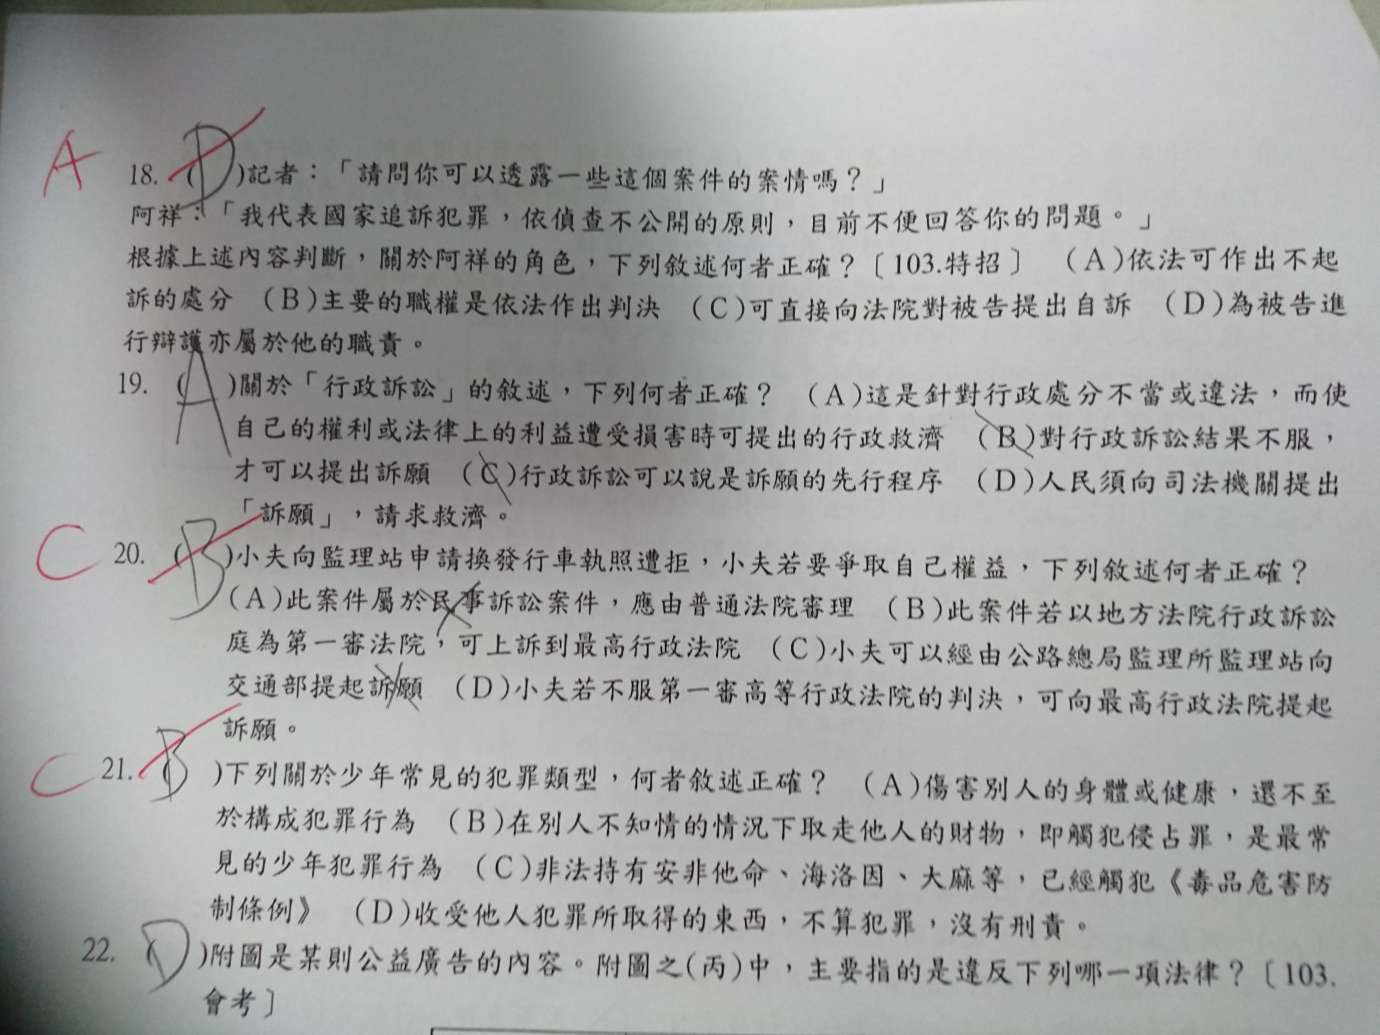 A 18. (D)記者：「請問你可以透露一些這個案件的案情嗎？」
阿祥：「我代表國家追訴犯罪，依偵查不公開的原則，目前不便回答你的問題。」
根據上述內容判斷，關於阿祥的角色，下列敘述何者正確？〔103.特招〕 (A)依法可作出不起
訴的處分 (B)主要的職權是依法作出判決 (C)可直接向法院對被告提出自訴 (D)為被告進
行辯護亦屬於他的職責。
19. (A)關於「行政訴訟」的敘述，下列何者正確？ (A)這是針對行政處分不當或違法，而使
自己的權利或法律上的利益遭受損害時可提出的行政救濟 (B)對行政訴訟結果不服，
才可以提出訴願 (C)行政訴訟可以說是訴願的先行程序 (D)人民須向司法機關提出
「訴願」，請求救濟。
C 20. (B)小夫向監理站申請換發行車執照遭拒，小夫若要爭取自己權益，下列敘述何者正確？
(A)此案件屬於民事訴訟案件，應由普通法院審理 (B)此案件若以地方法院行政訴訟
庭為第一審法院，可上訴到最高行政法院 (C)小夫可以經由公路總局監理所監理站向
交通部提起訴願 (D)小夫若不服第一審高等行政法院的判決，可向最高行政法院提起
訴願。
C 21. (B)下列關於少年常見的犯罪類型，何者敘述正確？ (A)傷害別人的身體或健康，還不至
於構成犯罪行為 (B)在別人不知情的情況下取走他人的財物，即觸犯侵占罪，是最常
見的少年犯罪行為 (C)非法持有安非他命、海洛因、大麻等，已經觸犯《毒品危害防
制條例》 (D)收受他人犯罪所取得的東西，不算犯罪，沒有刑責。
22. (D)附圖是某則公益廣告的內容。附圖之(丙)中，主要指的是違反下列哪一項法律？〔103.
會考〕